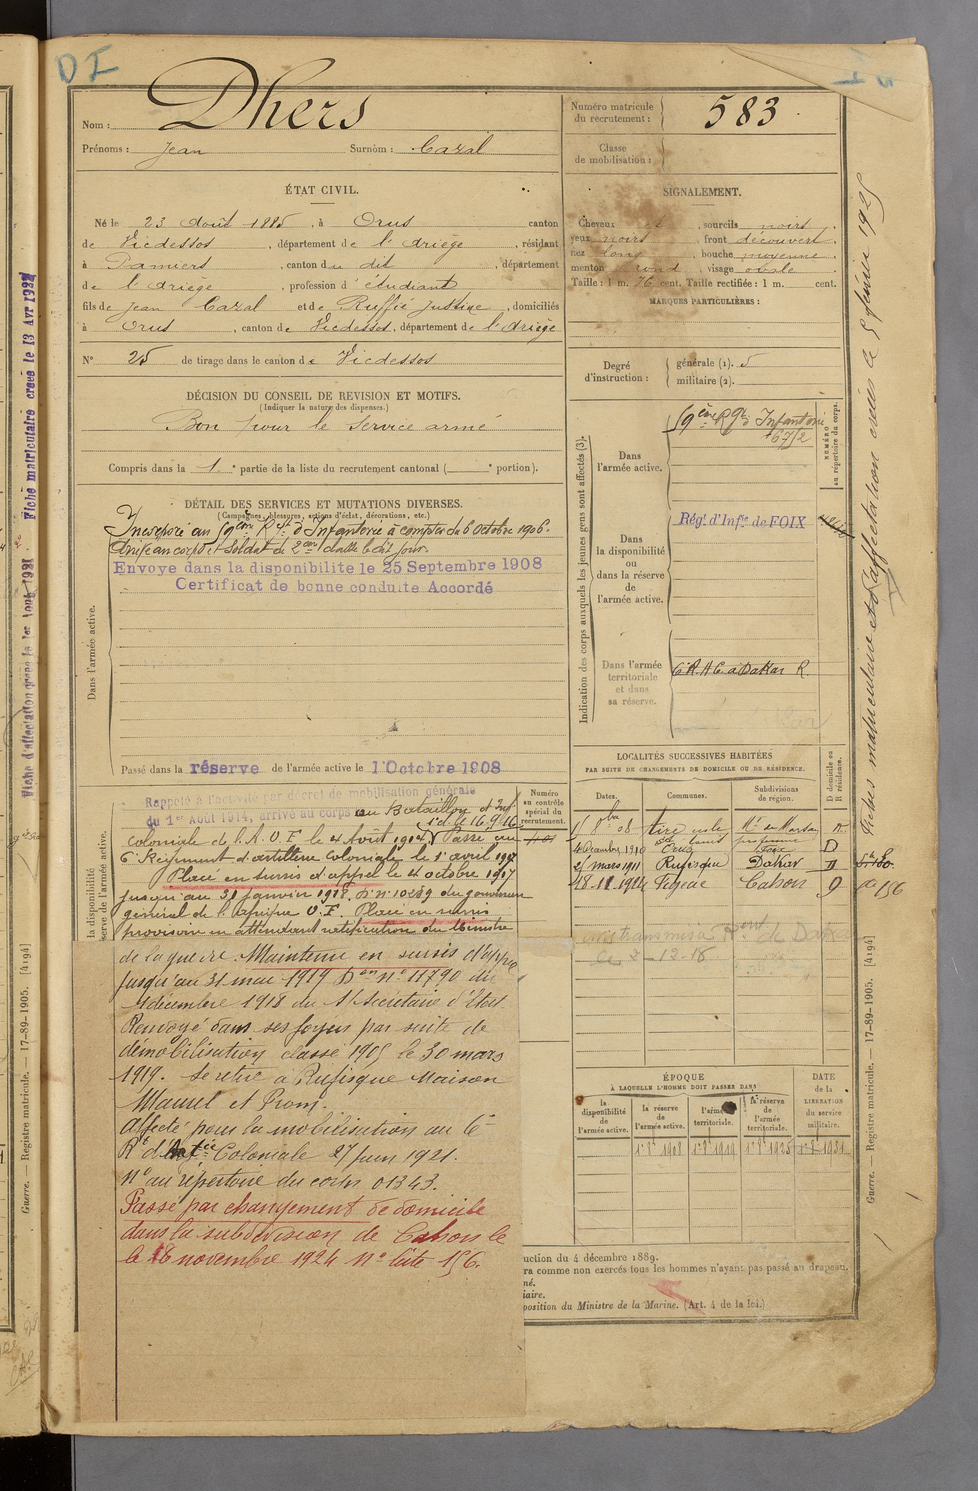 DI
Nom : Dhers
Prénoms : Jean Surnom : Cazal
ÉTAT CIVIL.
Né le 23 Août 1885, à Orus canton
de Vicdessos, département de l'Ariège, résidant
à Pamiers, canton du dit, département
de l'Ariège, profession d'étudiant
fils de Jean Cazal et de Ruffié Justine, domiciliés
à Orus, canton de Vicdessos, département de l'Ariège
N° 25 de tirage dans le canton de Vicdessos
DÉCISION DU CONSEIL DE REVISION ET MOTIFS.
(Indiquer la nature des dispenses.)
Bon pour le service armé
Compris dans la 1e partie de la liste du recrutement cantonal ( e portion).
DÉTAIL DES SERVICES ET MUTATIONS DIVERSES.
(Campagnes, blessures, actions d'éclat, décorations, etc.)
Incorporé au 59ème Rgt d'Infanterie à compter du 6 octobre 1906.
Arrivé au corps et soldat de 2ème classe le dit jour.
Envoye dans la disponibilite le 25 Septembre 1908
Certificat de bonne conduite Accordé
Dans l'armée active.
Passé dans la réserve de l'armée active le 1 Octobre 1908
Rappelé à l'activité par décret de mobilisation générale
du 1er Août 1914, arrivé au corps au Bataillon d'Inf
coloniale de l'A. O. F. le 4 Août 1914 Passé au
6e Régiment d'artillerie Coloniale le 1er avril 1917
Placé en sursis d'appel le 4 octobre 1917
jusqu'au 31 janvier 1918. D. n° 10289 du gouverneur
général de l'Afrique O. F. Placé en sursis
provisoire en attendant notification du Ministre
de la guerre. Maintenu en sursis d'appel
jusqu'au 31 mai 1919 Don n° 11790 du
4 décembre 1918 du S/Secrétaire d'Etat
Renvoyé dans ses foyers par suite de
démobilisation classe 1905 le 30 mars
1919. Se retire à Rufisque Maison
Maurel et Prom.
Affecté pour la mobilisation au 6e
Rt d'Artie Coloniale 27 Juin 1921.
N° au répertoire du corps 01343.
Passé par changement de domicile
dans la subdivision de Cahors le
le 18 novembre 1924 n° liste 156.
la disponibilité
serve de l'armée active.
Numéro
au contrôle
spécial du
recrutement.
Numéro matricule
du recrutement : 583
Classe
de mobilisation :
SIGNALEMENT.
Cheveux et, sourcils noirs
yeux noirs front découvert
nez long, bouche moyenne
menton rond, visage ovale
Taille : 1 m. 76 cent. Taille rectifiée : 1 m. cent.
MARQUES PARTICULIÈRES :
Degré
d'instruction :
générale (1). 5
militaire (2).
Indication des corps auxquels les jeunes gens sont affectés (3).
Dans
l'armée active.
59ème Rgt d'Infanterie
NUMÉRO
au répertoire du corps.
Dans
la disponibilité
ou
dans la réserve
de
l'armée active.
Régt d'Infie de FOIX
Dans l'armée
territoriale
et dans
sa réserve.
6e R. A. C. à Dakar R.
LOCALITÉS SUCCESSIVES HABITÉES
PAR SUITE DE CHANGEMENTS DE DOMICILE OU DE RÉSIDENCE.
Dates. Communes. Subdivisions
de région. D domicile ou
R résidence.
4 Décembre 1910 Orus Foix D
2 mars 1911 Rufisque Dakar
18-11-1924 Figeac Cahors D
156
le 2-12-18
ÉPOQUE
À LAQUELLE L'HOMME DOIT PASSER DANS
la
disponibilité
de
l'armée active.
la réserve
de
l'armée active.
l'armée
territoriale.
la réserve
de
l'armée
territoriale.
DATE
de la
LIBÉRATION
du service
militaire.
1er 8bre 1908
uction du 4 décembre 1889.
ra comme non exercés tous les hommes n'ayant pas passé au drapeau.
né.
iaire.
position du Ministre de la Marine. (Art. 4 de la loi.)
Guerre. — Registre matricule. — 17-89-1905. [4194]
Guerre. — Registre matricule. — 17-89-1905. [4194]
Fiches matriculaire et d'affectation créées le 5 février 1925
Fiche matriculaire créée le 13 Avr 1922